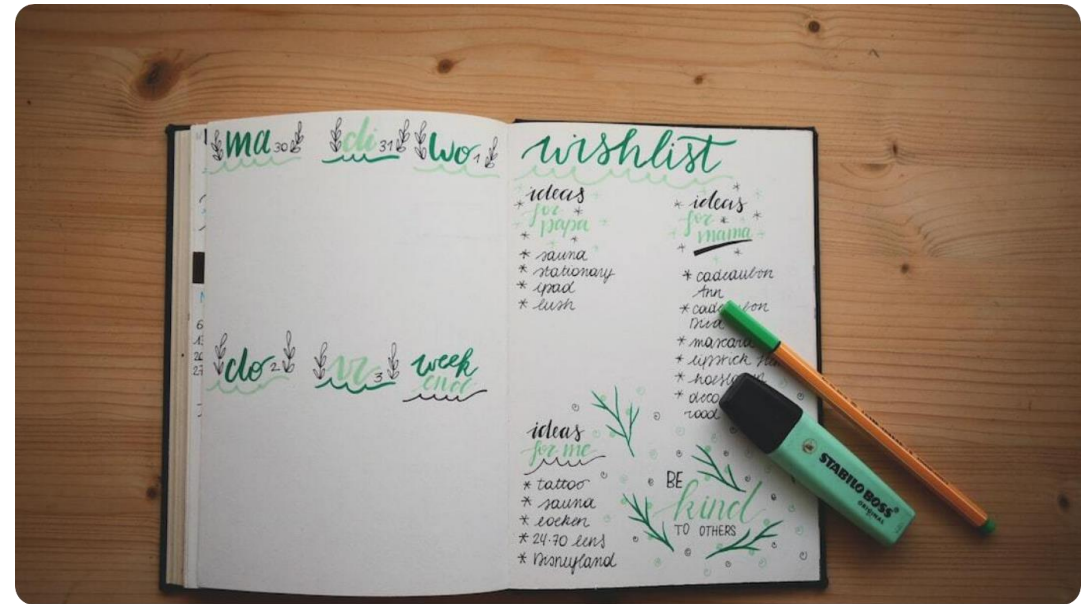 ma 30
di 31
wo 1
do 2
vr 3
week
end
wishlist
ideas
for
papa
* sauna
* stationary
* ipad
* lush
ideas
for
mama
* cadeaubon
Ann
* mascara
* lipstick
* deco
rood
ideas
for me
* tattoo
* sauna
* boeken
* 24-70 lens
* Disneyland
BE
kind
TO OTHERS
STABILO BOSS
ORIGINAL